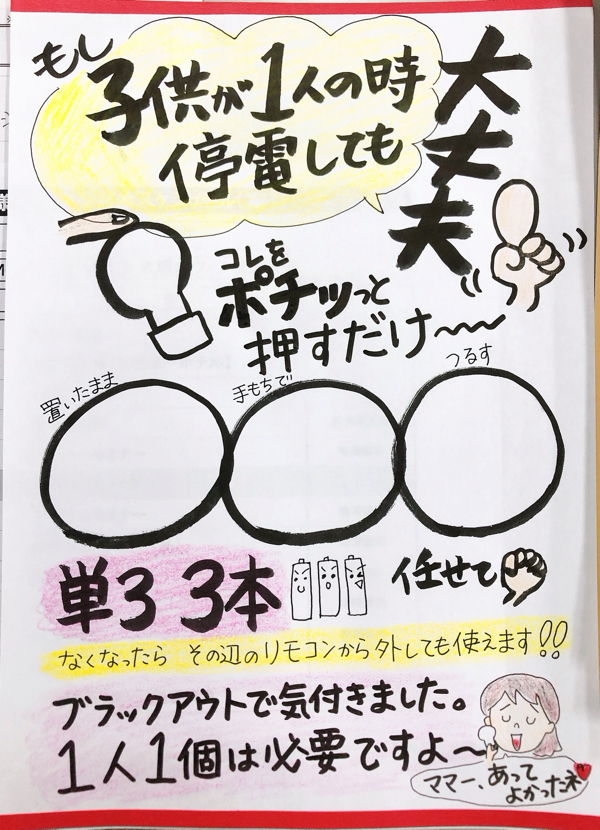 もし
子供が1人の時
停電しても
大丈夫
コレを
ポチッっと
押すだけ〜〜
置いたまま
手もちで
つるす
単3 3本
任せて
なくなったら その辺のリモコンから外しても使えます!!
ブラックアウトで気付きました。
1人1個は必要ですよ〜
ママー、あって
よかったネ